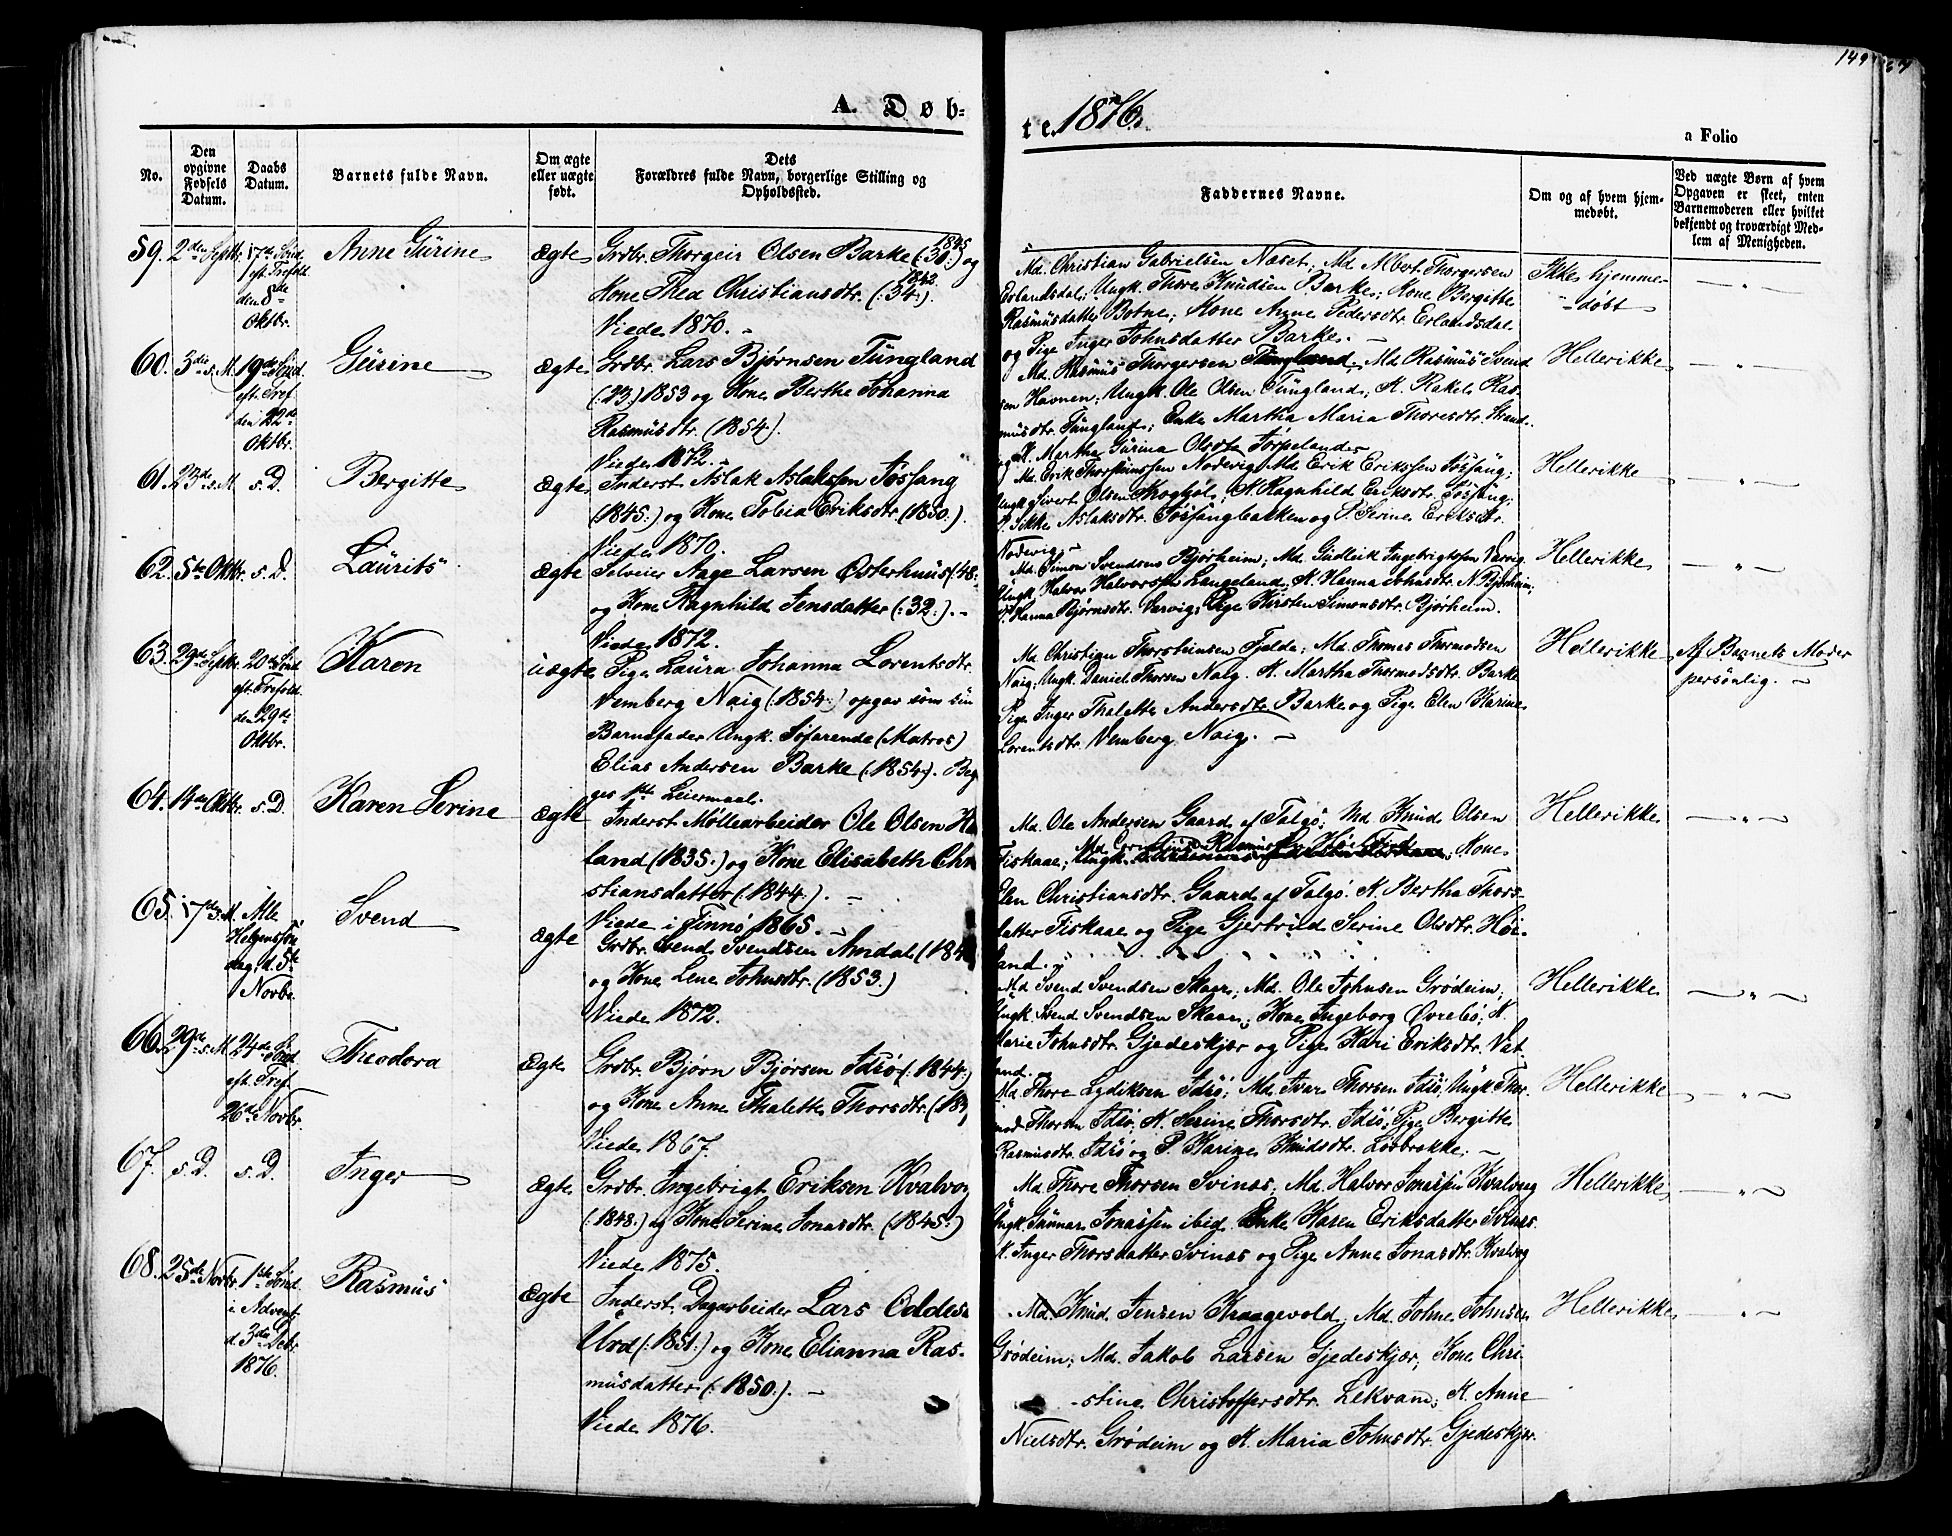 149
A. Døb-
te. 1876.
a Folio
No.
Den opgivne Fødsels Datum.
Daabs Datum.
Barnets fulde Navn.
Om ægte eller uægte født.
Dets
Forældres fulde Navn, borgerlige Stilling og
Opholdssted.
Faddernes Navne.
Om og af hvem hjem-
medøbt.
Ved uægte Børn af hvem
Opgaven er skeet, enten
Barnemoderen eller hvilket
bekjendt og troværdigt Med-
lem af Menigheden.
59. 2den Septbr. 17de Sønd. eft. Trefold. den 8de Oktbr.
Anne Gurine
ægte
1845
Grdbr. Thorgeir Olsen Barke (:30:) og
1842
Kone Thea Christiansdtr. (:34:).
Viede 1870. -
Md. Christian Gabrielsen Næset; Md Albert Thorgersen
Erlandsdal; Ungk. Thore Knudsen Barke; Kone Bergitte
Rasmusdatter Botne; Kone Anne Pedersdtr. Erlandsdal
og Pige Inger Johnsdatter Barke. -
Ikke hjemme-
døbt
60. 3die s. M. 19de Sønd. eft. Tref. den 22de Oktbr.
Gurine
ægte
Grdbr. Lars Bjørnsen Tungland
(:23:) 1853 og Kone Berthe Johanna
Rasmusdtr. (1854).
Viede 1872. -
Md. Rasmus Thorgersen Tungland, Md Rasmus Svend
sen Havnen; Ungk. Ole Olsen Tungland; K. Rakel Ras-
musdtr. Tungland; Enke Martha Maria Thoresdtr. Strand.
og K. Martha Gurina Olsdtr Torpeland
Hellerikke
61. 23de s. M. s. D.
Bergitte
ægte
Inderst Aslak Aslaksen Fosfang
(1845:) og Kone Tobia Eriksdtr. (1850:).
Viede 1870.
Md. Erik Thorsteinssen Nodevig; Md. Erik Eriksen
Ungk. Sivert Olsen; K. Ragnhild Eriksdtr.
P. Sikke Aslaksdtr. og P. Serine Eriksdtr.
Nodevig
Hellerikke
62. 5te Oktbr. s. D.
Laurits
ægte
Selveier Aage Larsen Østerhus (:48:
og Kone Ragnhild Jensdatter (:32:). -
Viede 1872.
Md. Simon Svendsens Bjørheim; Md. Gudleik Ingebrigtsen Varvig
Ungk. Halvor Halvorsen Langeland; K. Hanna Johnsdtr. N. Bjørheim;
P. Hanna Bjørnsdtr. Varvig; Pige Kirsten Simonsdtr. Bjørheim.
Hellerikke
63. 29de Septbr. 20de Sønd eft. Trefold. den 29de Oktbr.
Karen
uægte
Pige Laura Johanna Lorentsdtr.
Vemberg Naig (:1854:) opgav som sin
Barnefader Ungk. Søfarende (Matros)
Elias Andersen Barke (:1854). Beg
ges 1ste Leiermaal.
Md. Christian Thorsteinsen Fjelde; Md. Thomas Thormodsen
Naig; Ungk. Daniel Thorsen Naig. K. Martha Thormodsdtr. Barke
Pige Inger Thalette Andersdtr Barke og Pige Elen Karine
Lorentsdtr. Vemberg Naig. -
Hellerikke
Af Barnets Moder
personlig. -
64. 14de Oktbr. s. D.
Karen Serine
ægte
Inderst Møllearbeider Ole Olsen Ha
land (1835:) og Kone Elisabeth Chri
stiansdatter (:1844:). -
Viede i Finnø 1865. -
Md. Ole Andersen Gaard af Talgø; Md Knud Olsen
Fiskaae; Ungk. Kone
Elen Christiansdtr. Gaard af Talgø. K. Bertha Thors-
datter Fiskaae og Pige Gjertrud Serine Olsdtr. Høi-
land.
Hellerikke
65. 17de s. M. Alle Helgenssøndag, d. 5te Novbr.
Svend
ægte
Grdbr. Svend Svendsen Amdal (184
og Kone Lene Johnsdtr. (1853.)
Viede 1872.
Md Svend Svendsen Skaar; Md. Ole Johnsen Grødeim;
Ungk. Svend Svendsen Skaar; Kone Ingeborg Øvrebø; K.
Marie Johnsdtr. Gjedeskjær og Pige Kari Eriksdtr. Vat-
land. -
Hellerikke
66. 29de s. M. 24de Sønd eft. Tref. 26de Novbr.
Theodora
ægte
Grdbr. Bjørn Bjørsen Idsø (:1844:)
og Kone Anne Thalette Thorsdtr. (18
Viede 1867.
Md Thore Lydiksen Idsø; Md Ivar Thorsen Idsø; Ungk. Thor-
mod Thorsen Idsø; K. Serine Thorsdtr. Idsø; Pige Bergitte
Rasmusdtr. Idsø og P. Karine Knudsdtr. Løvbrekke. -
Hellerikke
67. s. D. s. D.
Inger
ægte
Grdbr. Ingebrigt Eriksen Kvalvog
(:1848:) og Kone Serine Jonasdtr. (1845:)
Viede 1875.
Md. Thore Thorsen Svinæs; Md. Halvor Jonassen Kvalvaag
Ungk. Gunnar Jonassen ibid. Enke Karen Eriksdatter Svinæs.
K. Inger Thorsdatter Svinæs og Pige Anne Jonasdtr. Kvalvog
Hellerikke
68. 25de Novbr. 1ste Sønd. i Advent d. 3die Debr. 1876.
Rasmus
ægte
Inderst Dagarbeider Lars Oddes-
Urd (:1851:) og Kone Elianna Ras-
musdatter (:1850:). -
Viede 1876.
Md. Knud Jensen Kraagevold; Md. Johne Johnsen
Grødeim; Md. Jakob Larsen Gjedeskjær; Kone Chri-
-stine Christoffersdtr. Lekvam; K. Anne
Nielsdtr. Grødeim og K. Maria Johnsdtr. Gjedeskjær.
Hellerikke